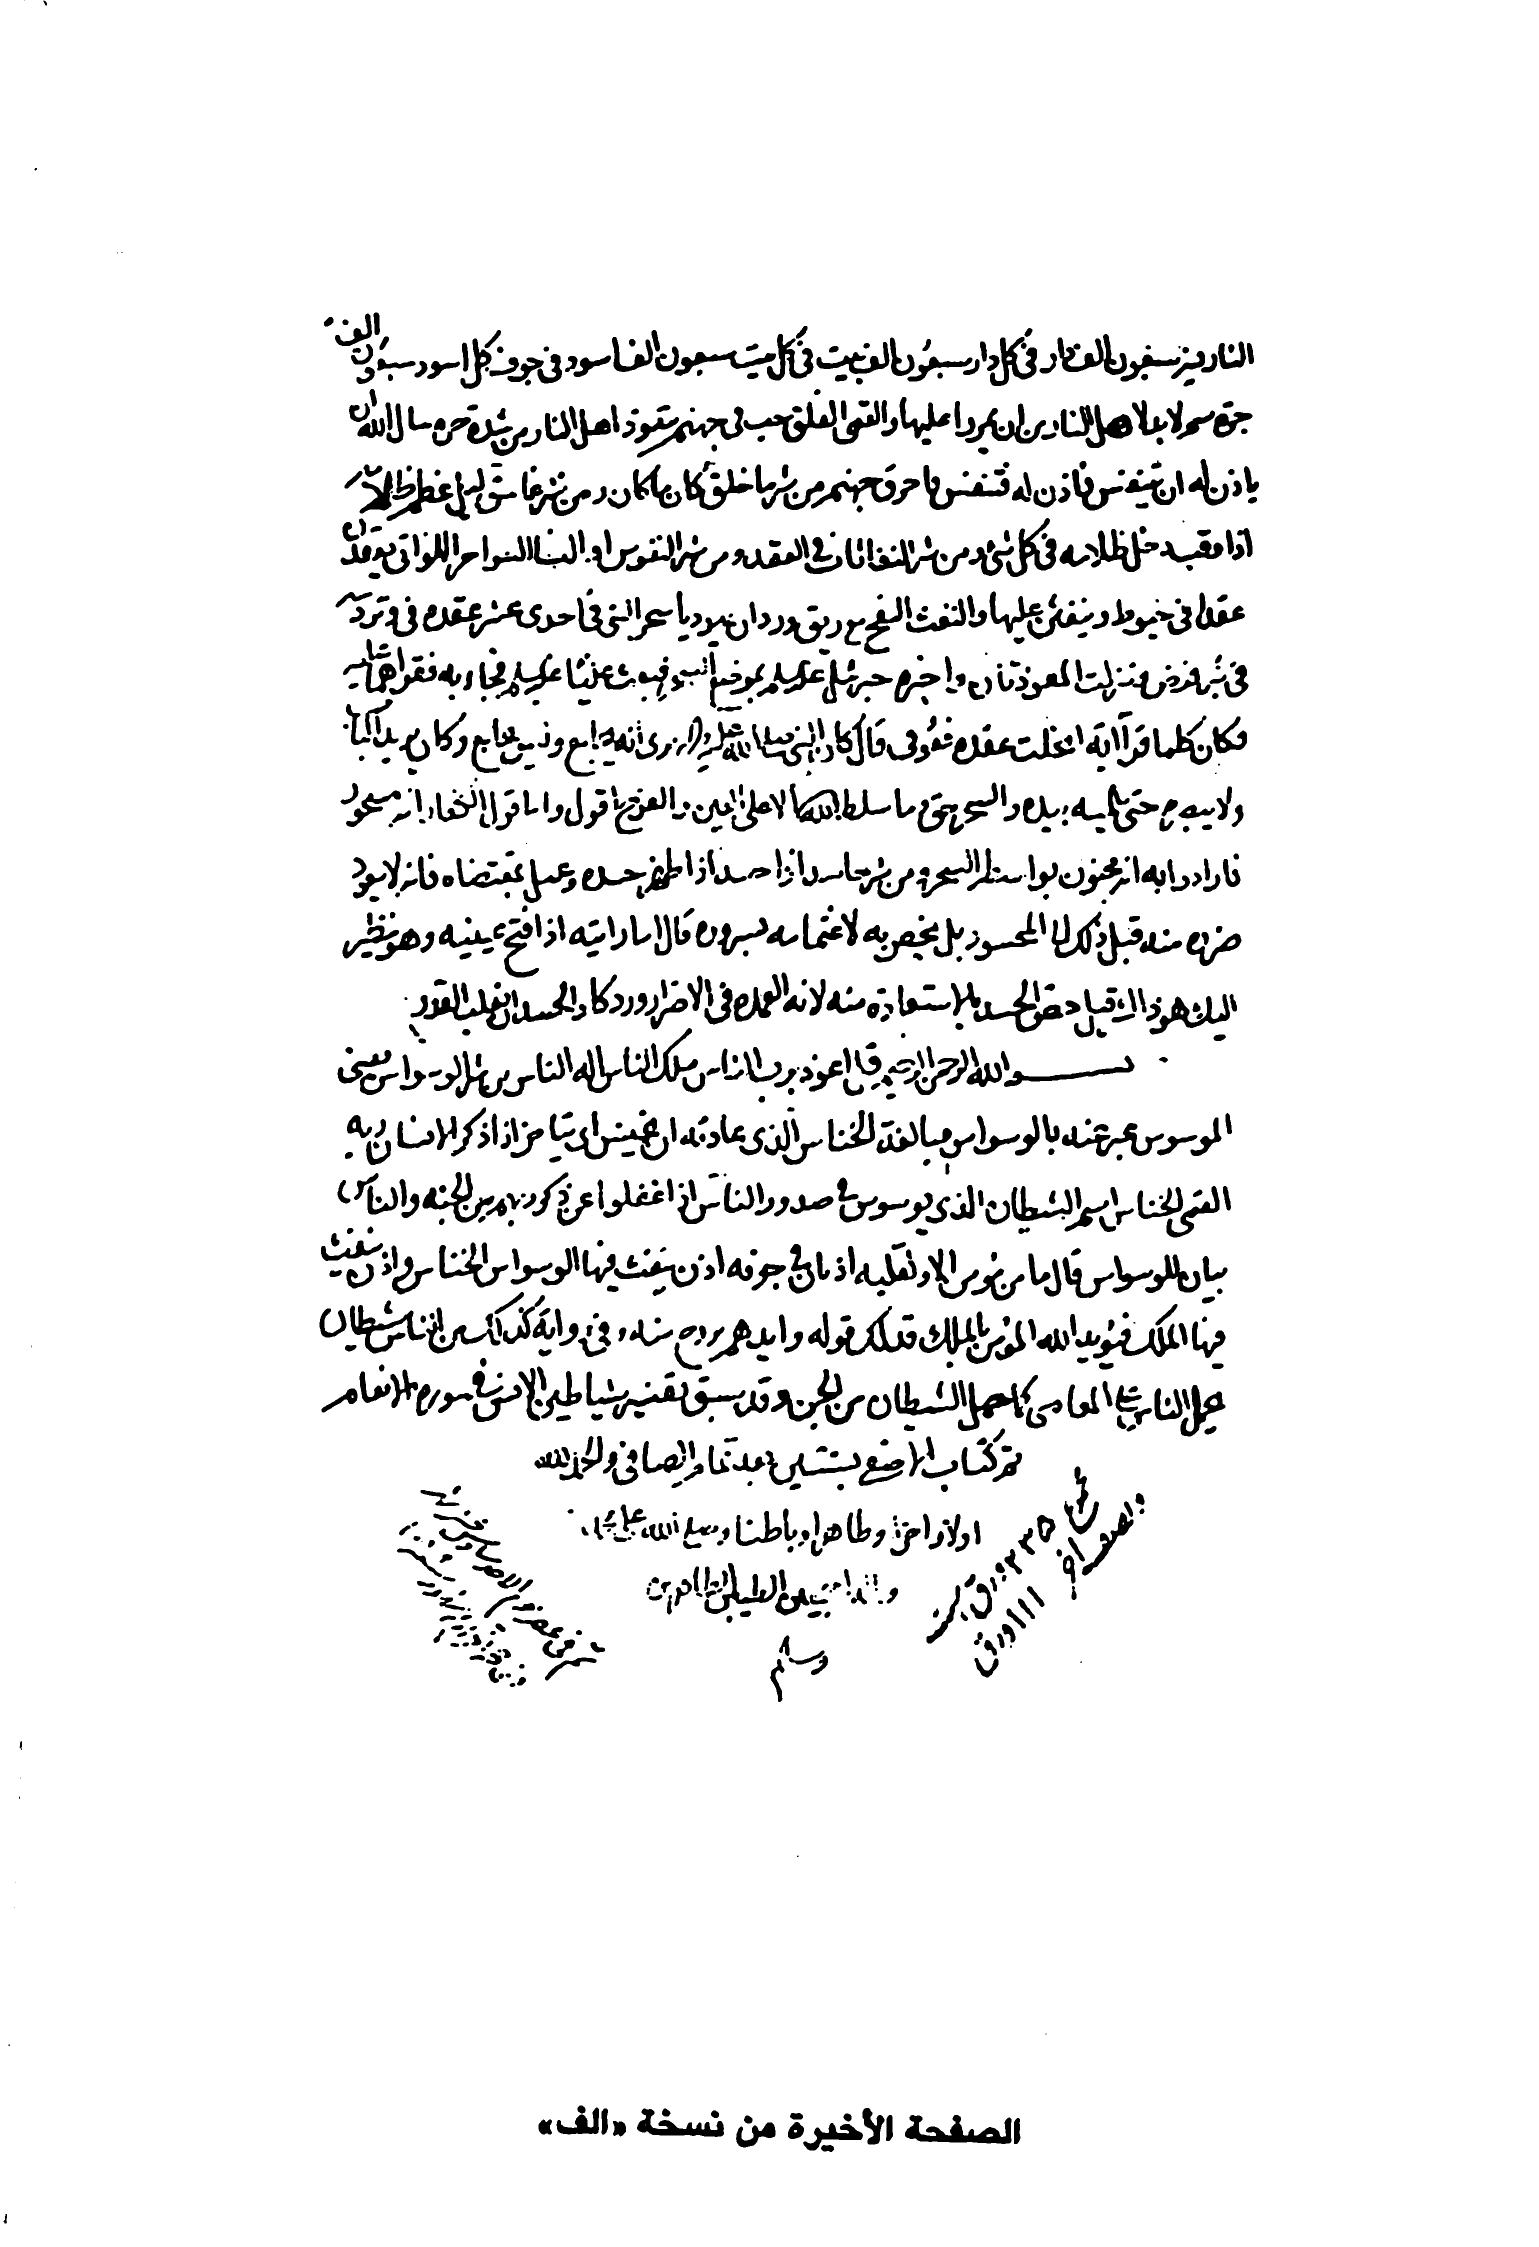 النار فيه سبعون الف دار في كل دار سبعون الف بيت في كل بيت سبعون الف اسود في جوف كل اسود سبعون الف
جرة سم لابد لاهل النار من ان يمروا عليها والقمى الفلق جب في جهنم يتعوذ اهل النار من شدة حره سال الله ان
ياذن له ان يتنفس فاذن له فتنفس فاحرق جهنم من شر ما خلق كان ما كان ومن شر غاسق ليل عظم ظلامه
اذا وقب دخل ظلامه في كل شئ ومن شر النفاثات في العقد ومن شر النفوس او النسا السواحر اللواتى يعقدن
عقدا في خيوط وينفثن عليها والنفث النفخ مع ريق ورد ان يهوديا سحر النبي في احدى عشر عقدة في وتر دسه
في بئر فمرض فنزلت المعوذتان واخبره جبرئيل بموضع السحر فبعث عليا فجاء به فقراهما عليه
فكان كلما قرا اية انحلت عقدة فعوفى قال كان النبي صلى الله عليه واله يرى انه يجامع وليس يجامع وكان يريد الباب
ولا يبصره حتى يلمسه بيده والسحر حق وما سلط السحر الا على العين والفرج اقول واما قول الكفار انه مسحور
فارادوا به انه مجنون بواسطة السحر ومن شر حاسد اذا حسد اذا ظهر حسده وعمل بمقتضاه فانه لا يعود
ضرره منه قبل ذلك الى المحسود بل يخص به لاغتمامه بسروره قال اما رايته اذا فتح عينيه وهو ينظر
اليك هو ذاك قيل خص الحسد بالاستعاذة منه لانه العمدة في الاضرار ورد كاد الحسد ان يغلب القدر
بسم الله الرحمن الرحيم قل اعوذ برب الناس ملك الناس اله الناس من شر الوسواس يعنى
الموسوس عبر عنه بالوسواس مبالغة الخناس الذى عادته ان يخنس اى يتاخر اذا ذكر الانسان ربه
القمى الخناس اسم الشيطان الذى يوسوس في صدور الناس اذا غفلوا عن ذكر ربهم من الجنة والناس
بيان للوسواس قال ما من مؤمن الا ولقلبه اذنان في جوفه اذن ينفث فيها الوسواس الخناس واذن ينفث
فيها الملك فيؤيد الله المؤمن بالملك فذلك قوله وايدهم بروح منه وفي رواية كذلك من الناس شيطان
يحمل الناس على المعاصى كما حمل الشيطان من الجن وقد سبق تفسير شياطين الانس في سورة الانعام
تم كتاب الاصفى بسنتين بعد تمام الصافى والحمد لله
اولا واخرا وظاهرا وباطنا وصلى الله على محمد
واله الطيبين الطاهرين
وسلم
١١١ ورق
الصفحة الأخيرة من نسخة «الف»